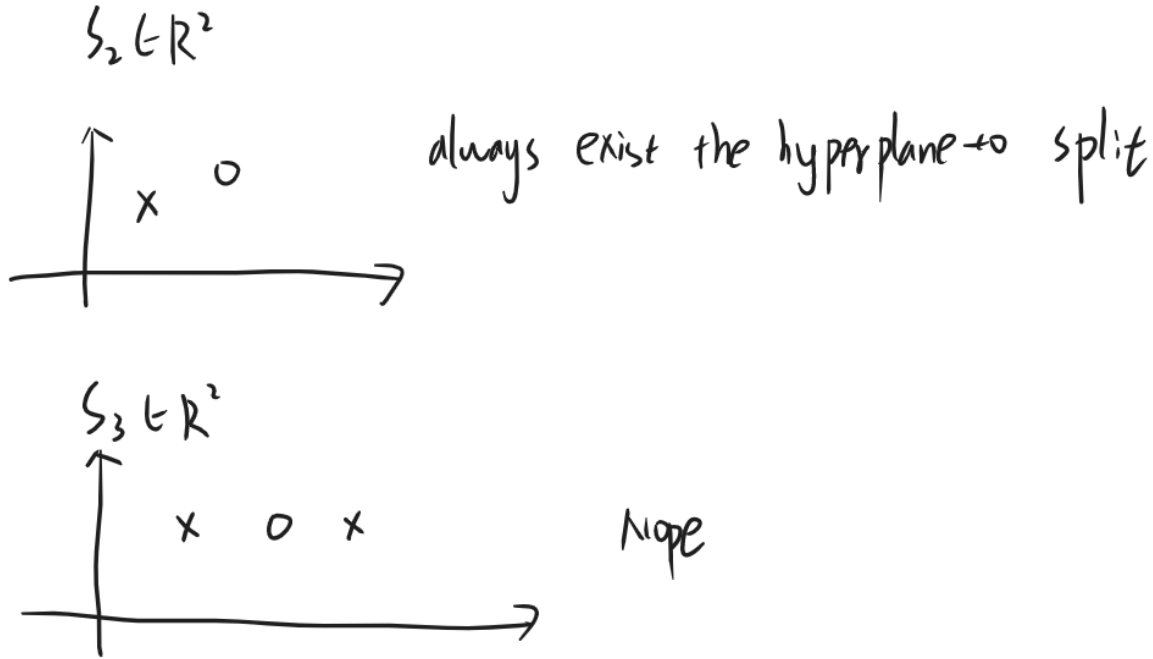 S₂ ∈ R²
always exist the hyperplane to split
S₃ ∈ R²
x o x
Nope